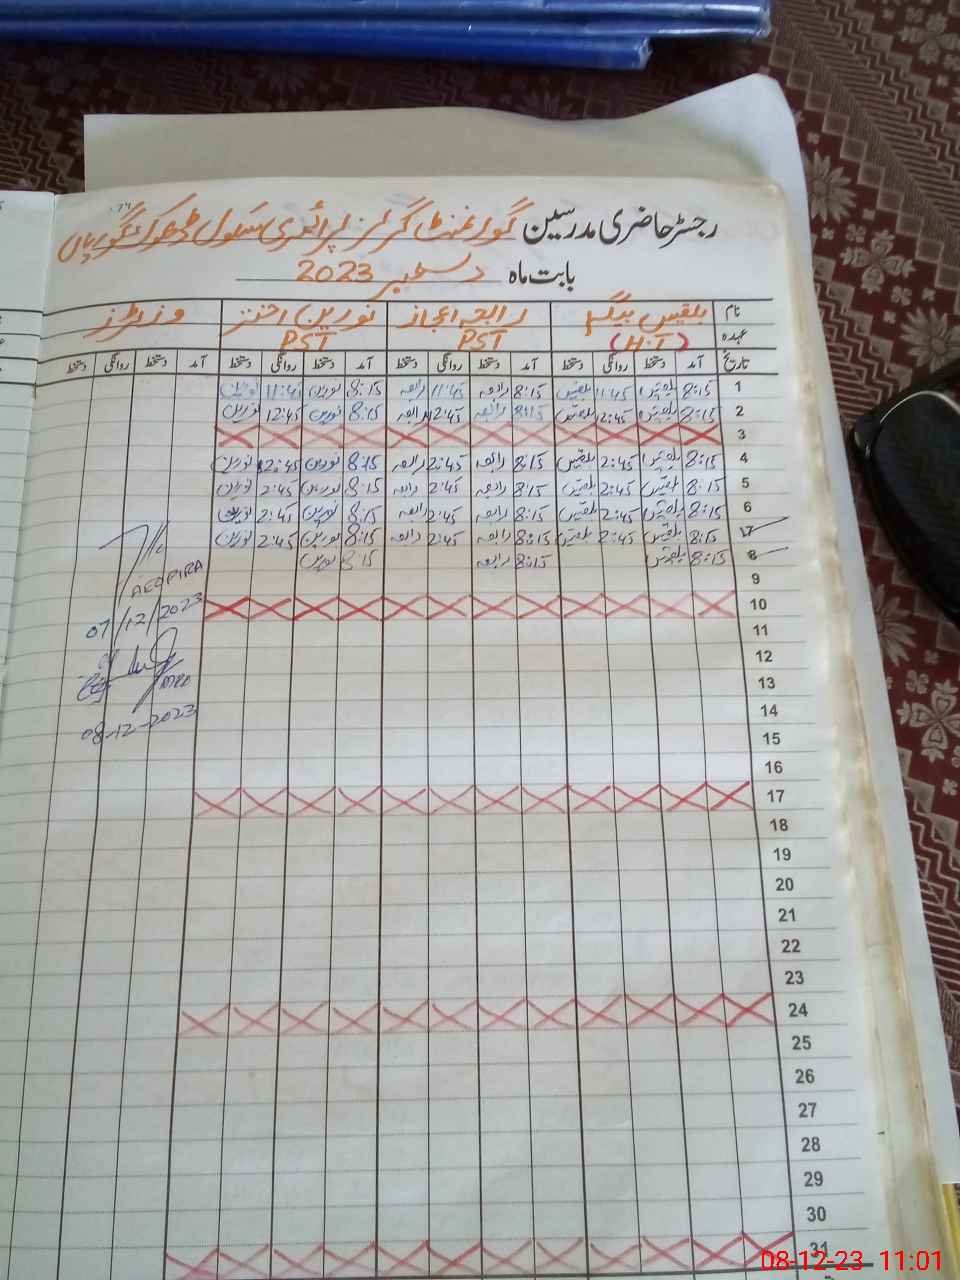 رجسٹر حاضری مدرسین گورنمنٹ گرلز پرائمری سکول ڈھوک گوریاں
بابت ماہ دسمبر 2023
نام بلقیس بیگم رابعہ اعجاز نورین اختر وزیٹرز
عہدہ (H.T) PST PST
تاریخ آمد دستخط روانگی دستخط آمد دستخط روانگی دستخط آمد دستخط روانگی دستخط آمد دستخط روانگی دستخط
1 8:15 بلقیس 11:45 بلقیس 8:15 رابعہ 11:45 رابعہ 8:15 نورین 11:45 نورین
2 8:15 بلقیس 12:45 بلقیس 8:15 رابعہ 12:45 رابعہ 8:15 نورین 12:45 نورین
3
4 8:15 بلقیس 2:45 بلقیس 8:15 رابعہ 2:45 رابعہ 8:15 نورین 2:45 نورین
5 8:15 بلقیس 2:45 بلقیس 8:15 رابعہ 2:45 رابعہ 8:15 نورین 2:45 نورین
6 8:15 بلقیس 2:45 بلقیس 8:15 رابعہ 2:45 رابعہ 8:15 نورین 2:45 نورین
7 8:15 بلقیس 2:45 بلقیس 8:15 رابعہ 2:45 رابعہ 8:15 نورین 2:45 نورین
8 8:15 بلقیس 8:15 رابعہ 8:15 نورین
AEO PIRA
07/12/2023
MEA
08-12-2023
9
10
11
12
13
14
15
16
17
18
19
20
21
22
23
24
25
26
27
28
29
30
31
08-12-23 11:01